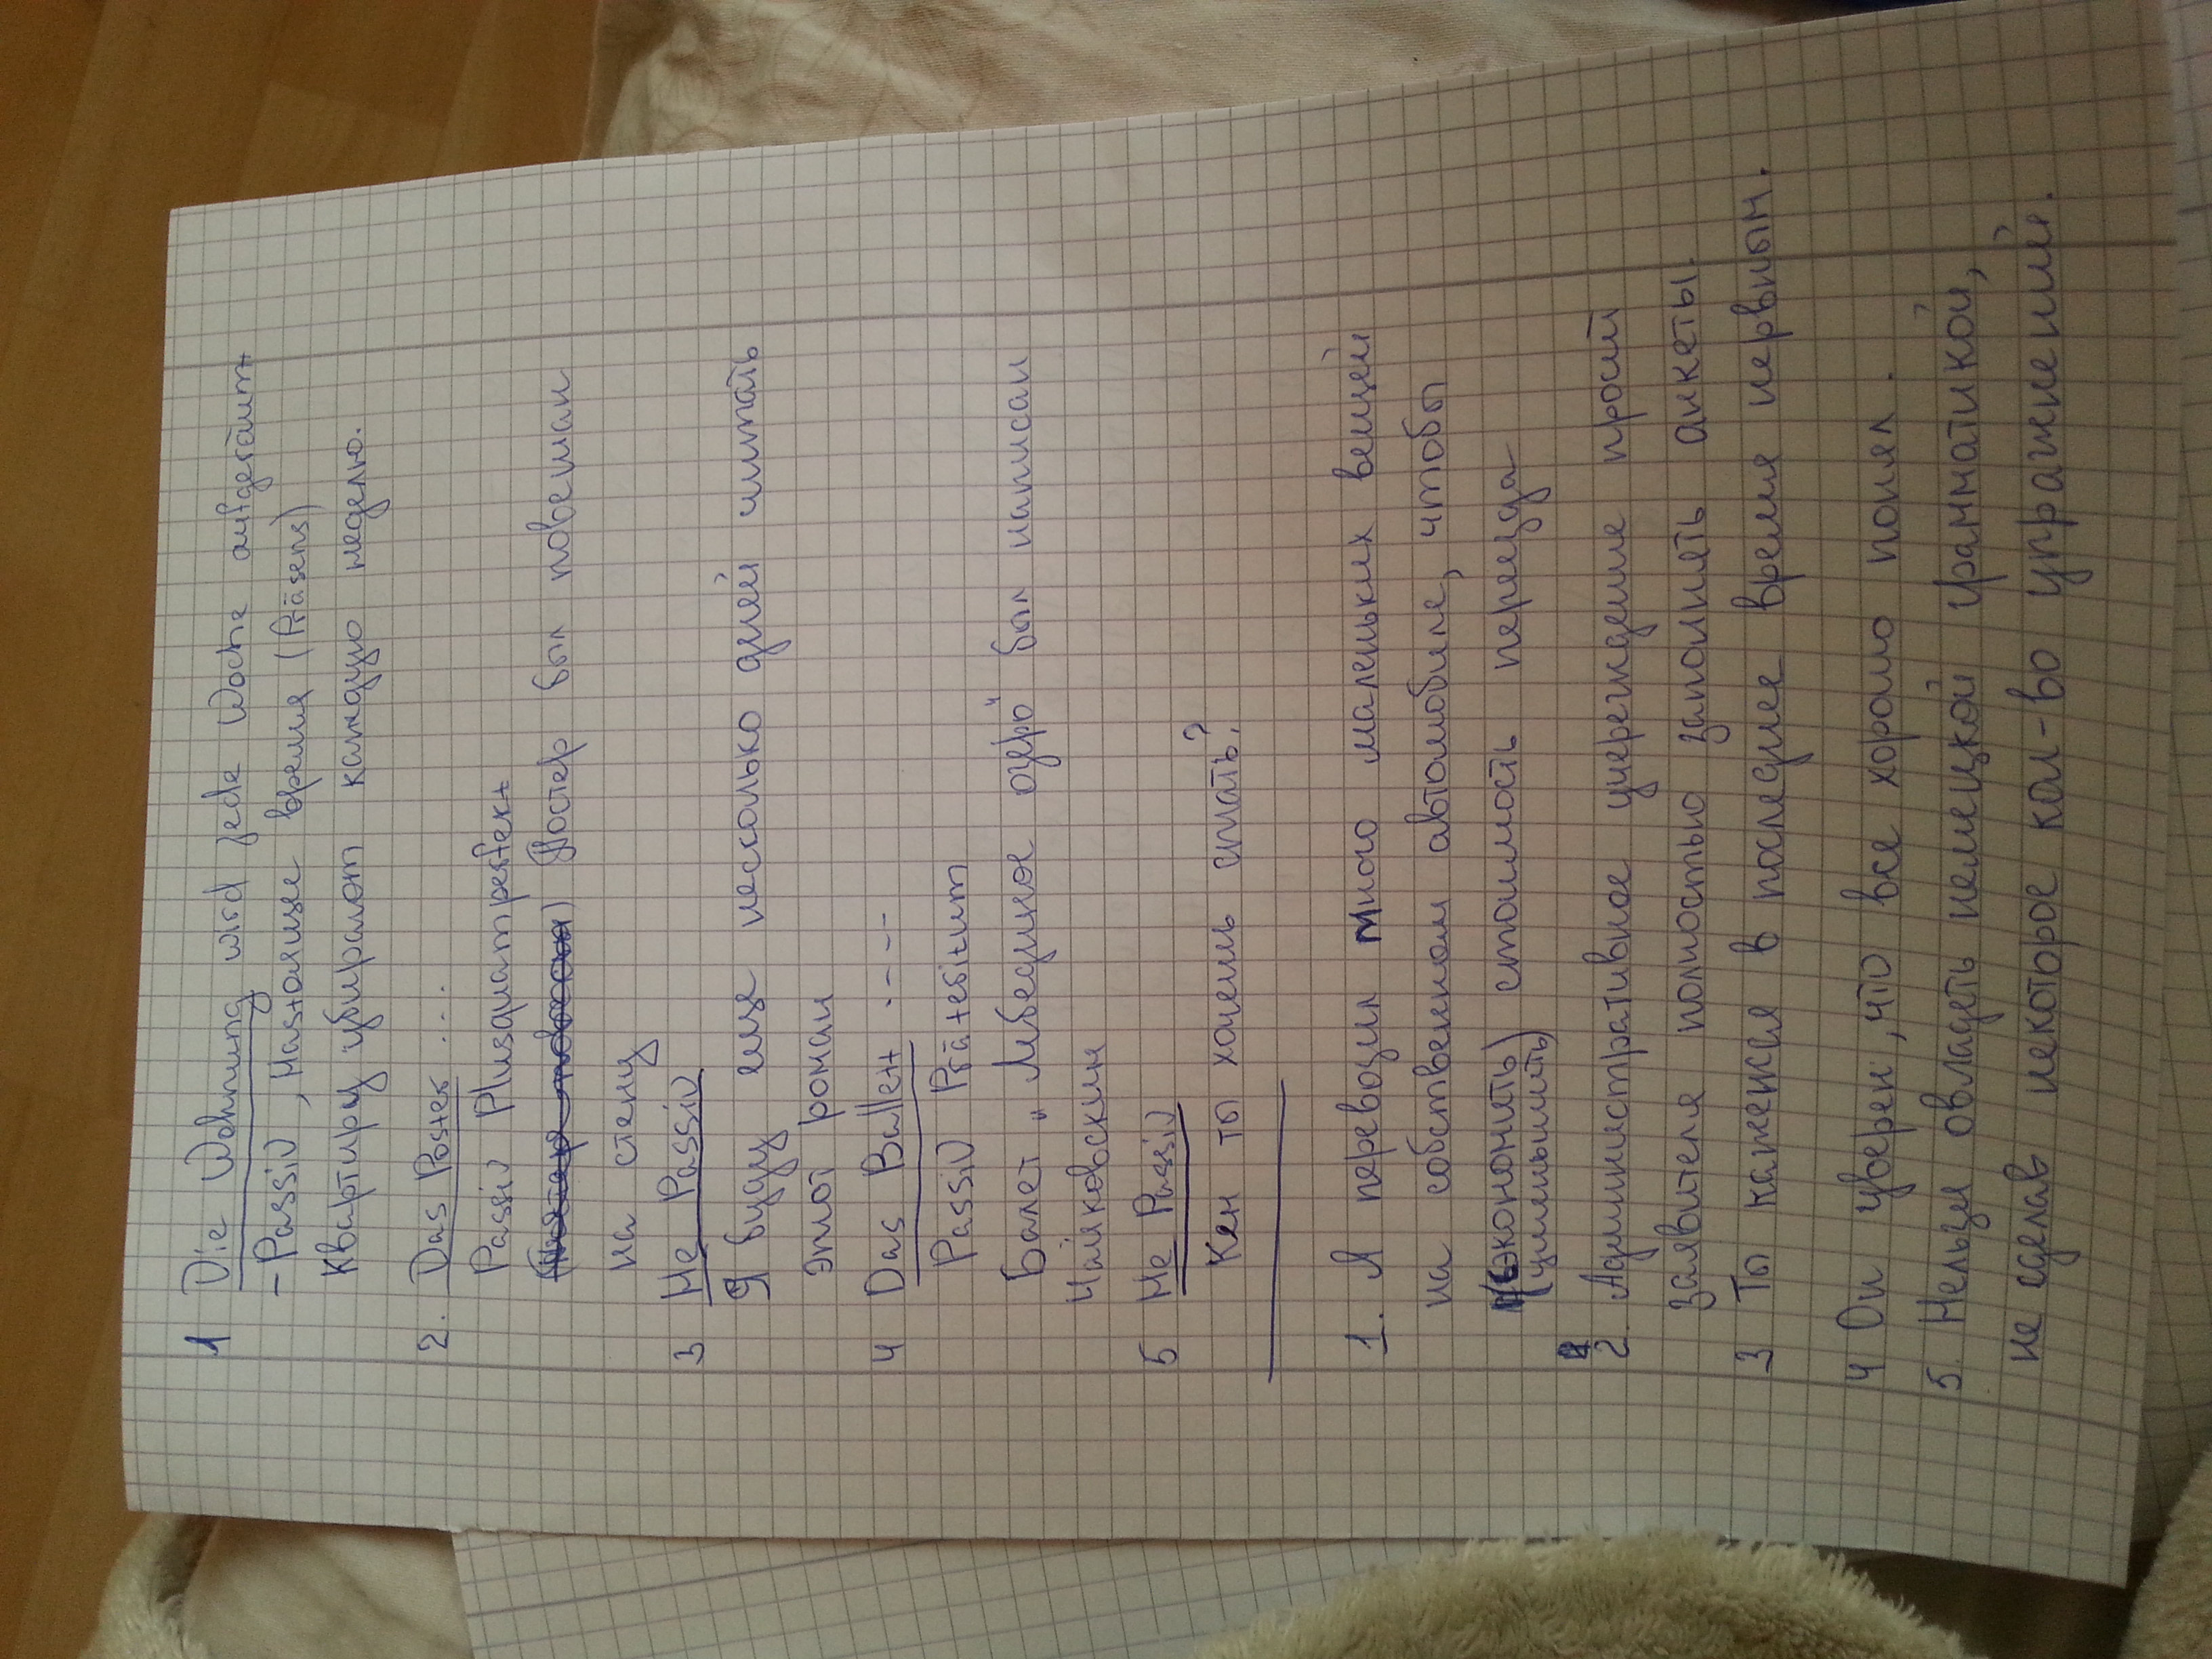 1 Die Wohnung wird jede Woche aufgeräumt
- Passiv, Настоящее время (Präsens)
Квартиру убирают каждую неделю.
2. Das Poster ....
Passiv Plusquamperfekt
Постер был повешан
на стену
3 Не Passiv
Я буду еще несколько дней читать
этот роман
4 Das Ballett . - - -
Passiv Präteritum
Балет "Лебединое озеро" был написан
Чайковским
5 Не Passiv
Кем ты хочешь стать?
1. Я перевозил много маленьких вещей
на собственном автомобиле, чтобы
(сэкономить) стоимость переезда
(уменьшить)
2. Административное учереждение просит
заявителя полностью заполнять анкеты.
3 Ты кажешся в последнее время нервным.
4 Он уверен, что все хорошо понял.
5. Нельзя овладеть немецкой грамматикой,
не сделав некоторое кол-во упражнений.